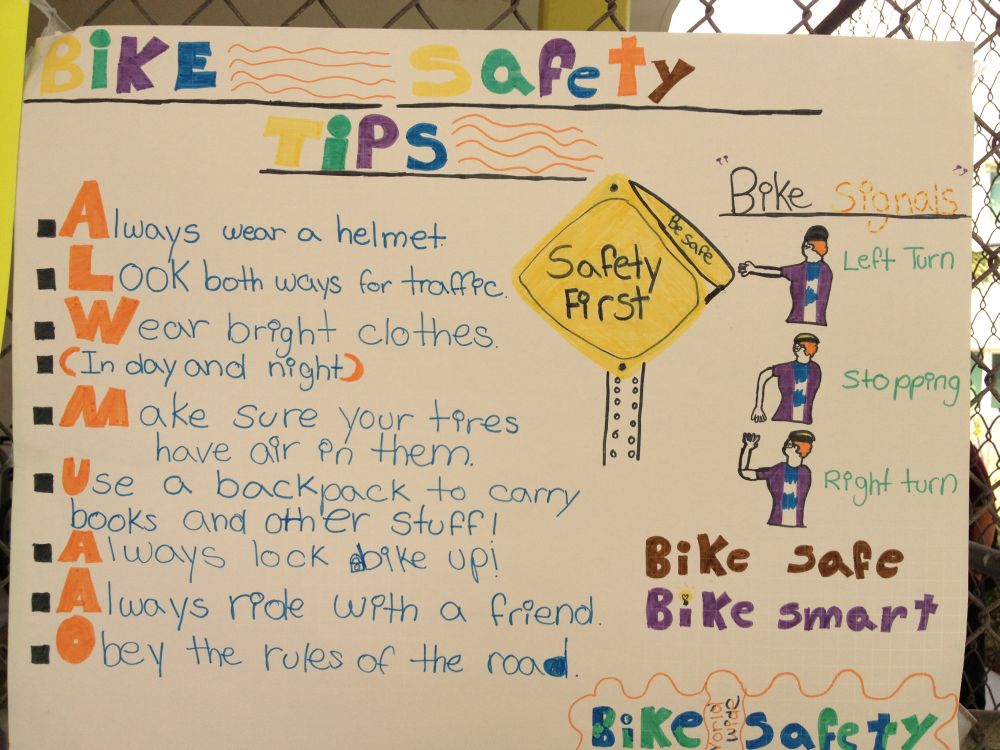 BiKE Safety
TiPS
Always wear a helmet.
LOOK both ways for traffic.
Wear bright clothes.
(In day and night)
Make sure your tires
have air in them.
Use a backpack to carry
books and other stuff!
Always lock bike up!
Always ride with a friend.
Obey the rules of the road.
Safety
First
Be safe
"Bike Signals"
Left Turn
Stopping
Right turn
BiKe safe
BiKe smart
BiKe World Wide Safety